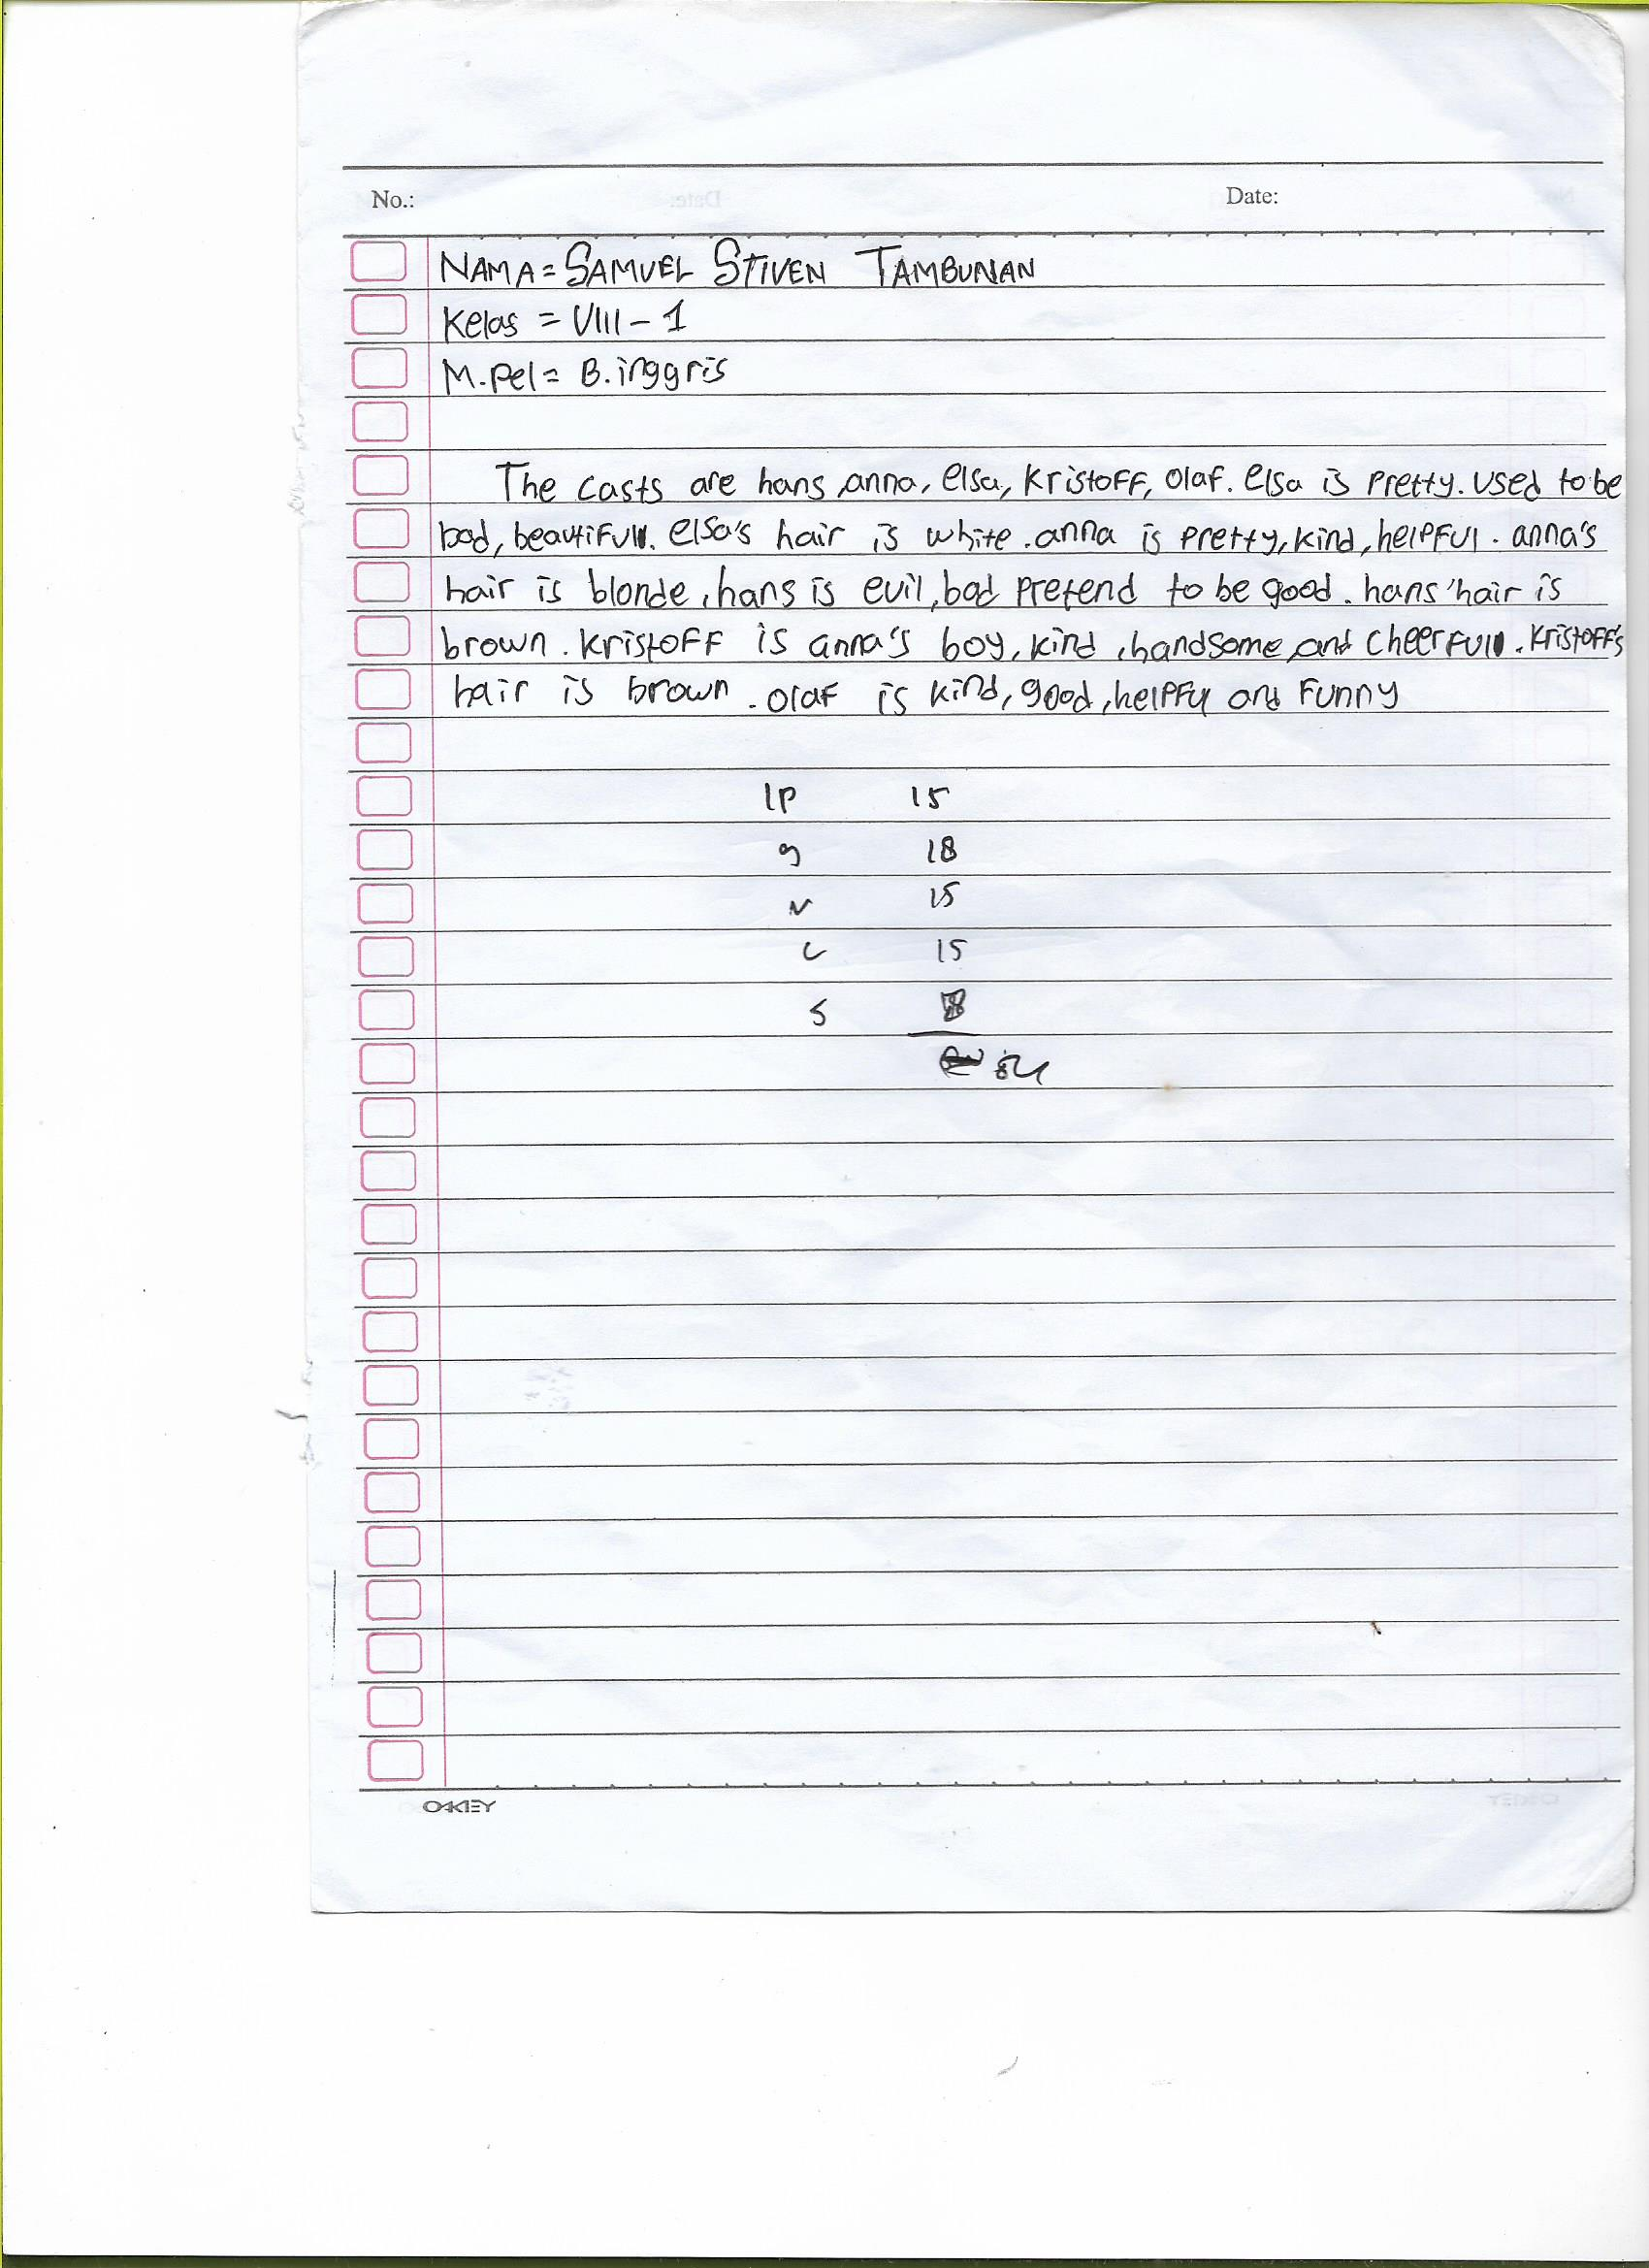 No.: Date:
NAMA = SAMUEL STIVEN TAMBUNAN
Kelas = VIII - 1
M.Pel = B. inggris
The casts are hans, anna, elsa, kristoff, olaf. elsa is pretty. used to be
bad, beautiful. elsa's hair is white. anna is pretty, kind, helpful. anna's
hair is blonde, hans is evil, bad pretend to be good. hans' hair is
brown. kristoff is anna's boy, kind, handsome, and cheerful. kristoff's
hair is brown. olaf is kind, good, helpful and funny
15
g 18
15
15
S
84
OAKEY